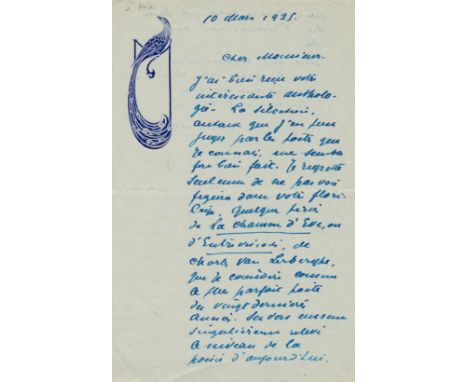 10 Mars 1925.
Cher Monsieur
J'ai bien reçu votre
intéressante antholo-
gie. La sélection,
autant que j'en puis
juger par les poètes que
je connais, me semble
fort bien fait. Je regrette
seulement de ne pas voir
figurer dans votre flori-
lège, quelque pièce
de La chanson d'Eve, ou
d'Entrevisions, de
Charles van Lerberghe,
que je considère comme
le plus parfait poète
des vingt dernières
années. Ses vers
singulièrement relevé
le niveau de la
poésie d'aujourd'hui.